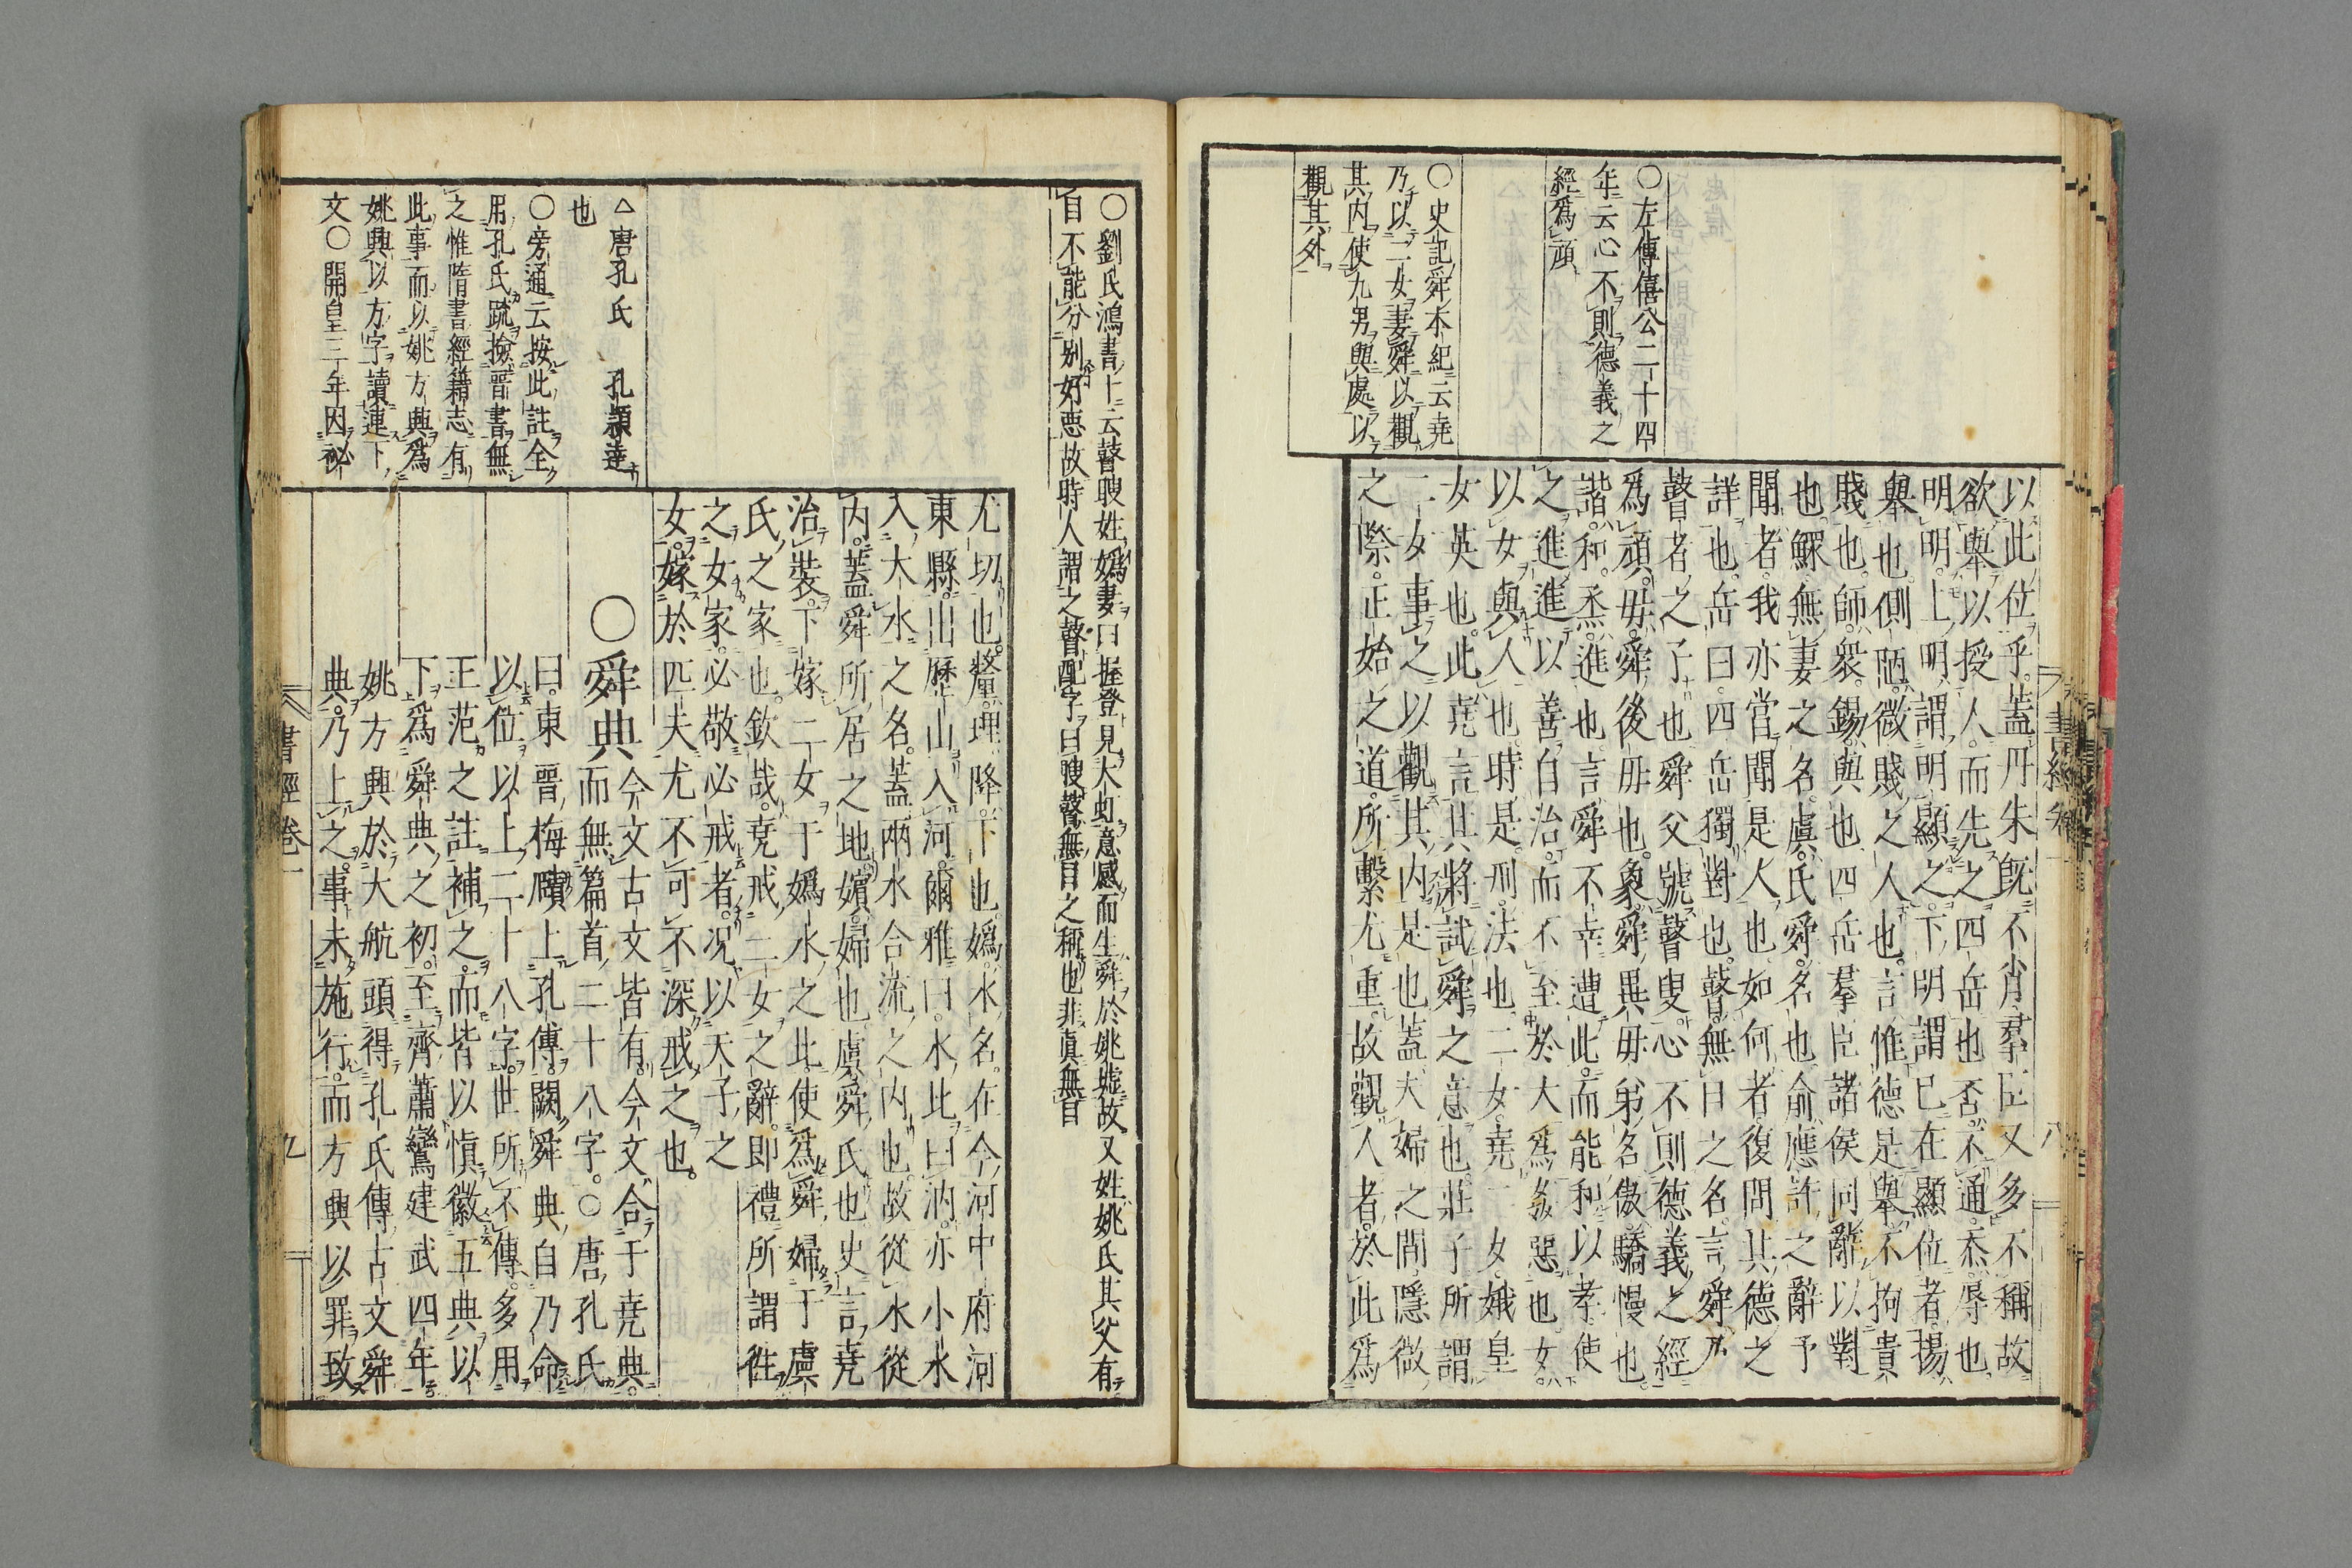 ○左傳僖公二十四
年云心不則德義之
經爲頑
○史記舜本紀云堯
乃以二女妻舜以觀
其内使九男與處以
觀其外
以此位乎蓋丹朱既不肖羣臣又多不稱故
欲舉以授人而先之四岳也否不通忝辱也
明明上明謂明顯之下明謂已在顯位者揚
舉也側陋微賤之人也言惟德是舉不拘貴
賤也師衆錫與也四岳羣臣諸侯同辭以對
也鰥無妻之名虞氏舜名也俞應許之辭予
聞者我亦嘗聞是人也如何者復問其德之
詳也岳曰四岳獨對也瞽無目之名言舜乃
瞽者之子也舜父號瞽叟心不則德義之經
爲頑毋舜後毋也象舜異毋弟名傲驕慢也
諧和烝進也言舜不幸遭此而能和以孝使
之進進以善自治而不至於大爲姦惡也女
以女與人也時是刑法也二女堯二女娥皇
女英也此堯言其將試舜之意也莊子所謂
二女事之以觀其内是也蓋夫婦之間隱微
之際正始之道所繫尤重故觀人者於此爲
書經卷一
八
○劉氏鴻書十云瞽瞍姓嬀妻曰握登見大虹意感而生舜於姚墟故又姓姚氏其父有
目不能分別好悪故時人謂之瞽配字曰瞍瞽無目之稱也非眞無目
尤切也釐理降下也嬀水名在今河中府河
東縣出歷山入河爾雅曰水北曰汭亦小水
入大水之名蓋兩水合流之内也故從水從
内蓋舜所居之地嬪婦也虞舜氏也史言堯
治裝下嫁二女于嬀水之北使爲舜婦于虞
氏之家也欽哉堯戒二女之辭即禮所謂徃
之女家必敬必戒者况以天子之
女嫁於匹夫尤不可不深戒之也
△唐孔氏 孔頴達
也
○旁通云按此註全
用孔氏䟽撿晉書無
之惟隋書經籍志有
此事而以姚方興爲
姚興以方字讀連下
文○開皇三年因必
○舜典今文古文皆有今文合于堯典
而無篇首二十八字○唐孔氏
曰東晋梅賾上孔傳闕舜典自乃命
以位以上二十八字世所不傳多用
王范之註補之而皆以愼徽五典以
下爲舜典之初至齊蕭鸞建武四年
姚方興於大航頭得孔氏傳古文舜
典乃上之事未施行而方興以罪致
書經卷一
九